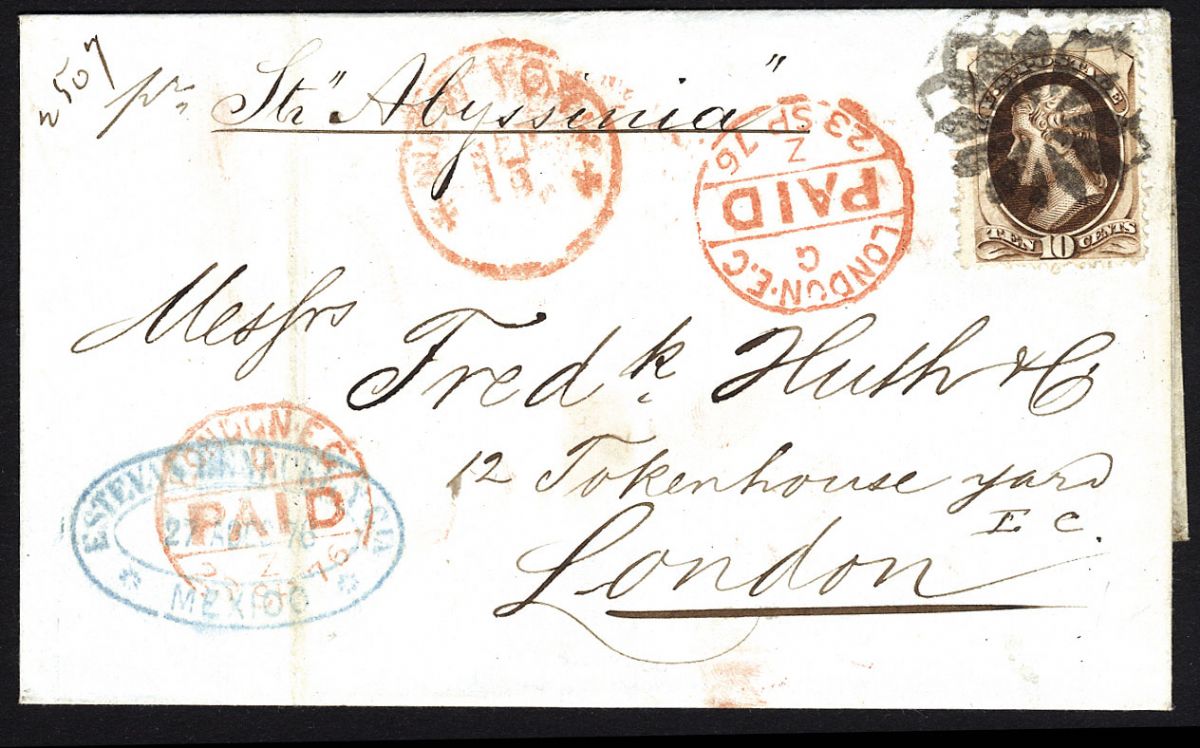 2507
pr Str "Abyssinia"
U.S. POSTAGE
TEN 10 CENTS
LONDON·E.C
Q
PAID
Z
23 SP 76
Messrs
Fredk. Huth & Co
12 Tokenhouse yard
E C.
London
LONDON·E.C
PAID
Z
76
ESTEVA
27 AGTO 76
MEXICO